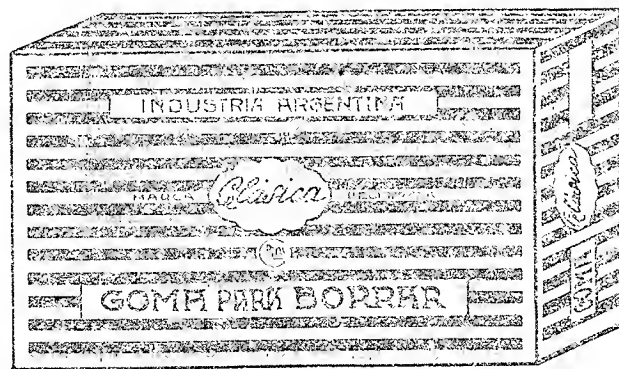 INDUSTRIA ARGENTINA
MARCA Clásica
GOMA PARA BORRAR
Clásica
GOMA